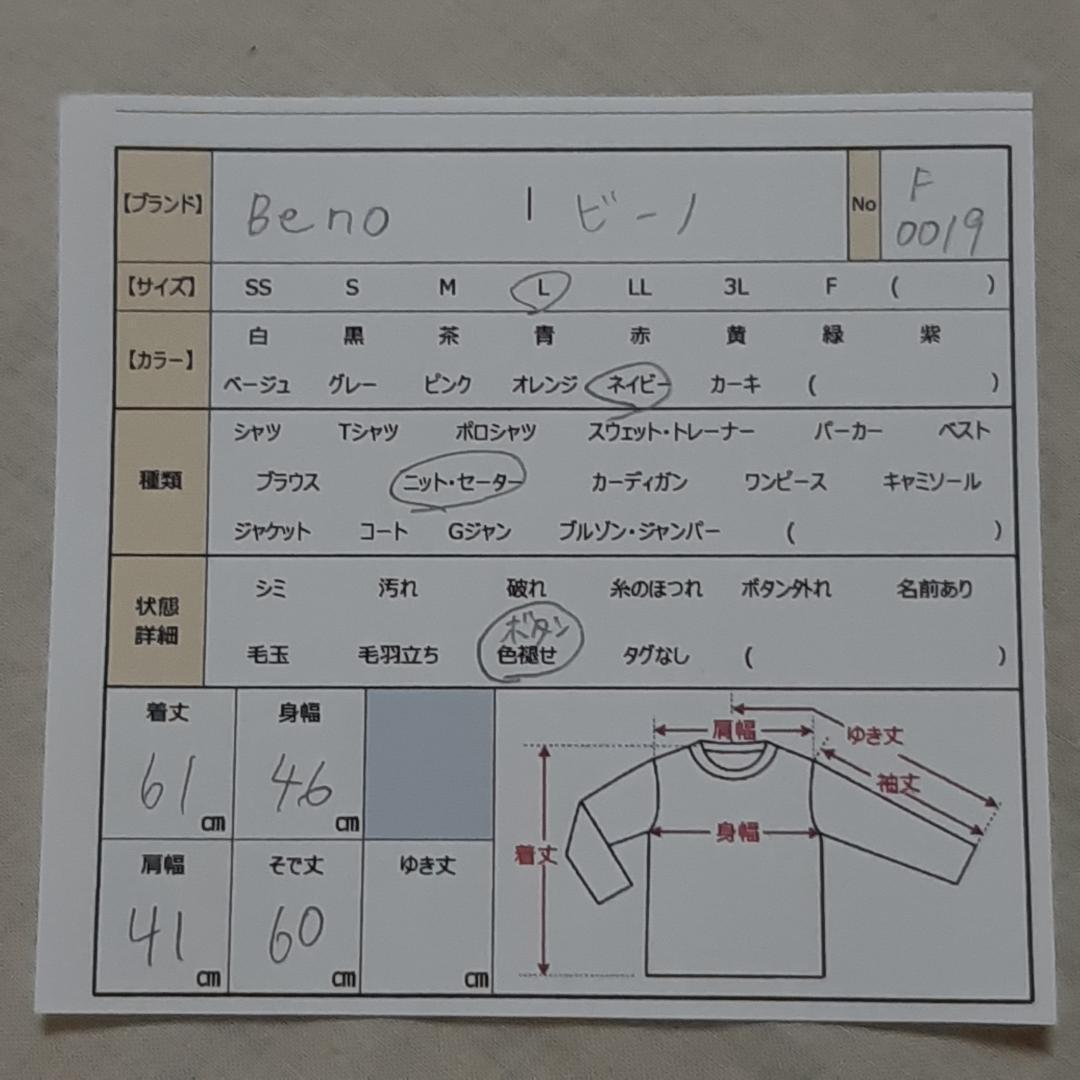 【ブランド】 Beno | ビーノ No F
0019
【サイズ】 SS S M L LL 3L F ( )
【カラー】 白 黒 茶 青 赤 黄 緑 紫
ベージュ グレー ピンク オレンジ ネイビー カーキ ( )
種類 シャツ Tシャツ ポロシャツ スウェット・トレーナー パーカー ベスト
ブラウス ニット・セーター カーディガン ワンピース キャミソール
ジャケット コート Gジャン ブルゾン・ジャンパー ( )
状態
詳細
シミ 汚れ 破れ 糸のほつれ ボタン外れ 名前あり
ボタン
毛玉 毛羽立ち 色褪せ タグなし ( )
着丈 身幅
61 cm 46 cm
肩幅 そで丈 ゆき丈
41 cm 60 cm cm
肩幅 ゆき丈
袖丈
身幅
着丈